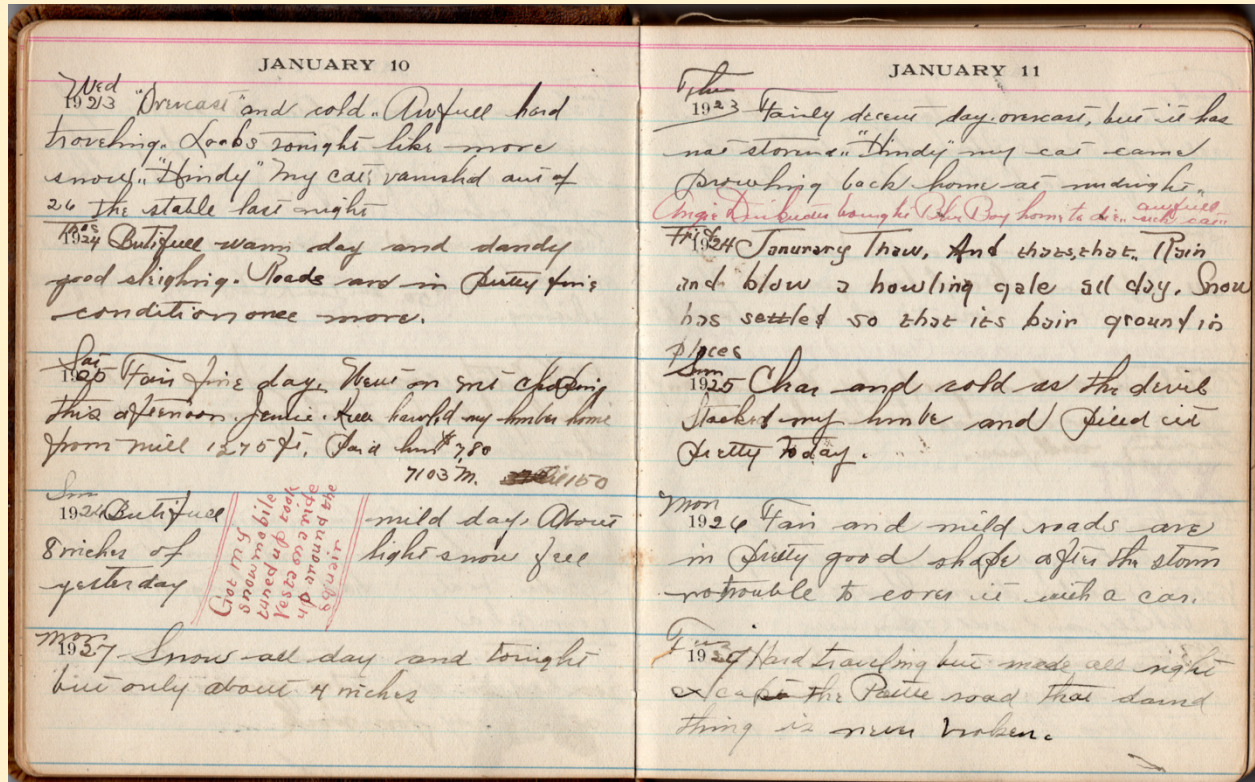 JANUARY 10
Wed
1923 "Overcast" and cold.. Awfull hard
traveling. Looks tonight like more
snow.. "Hindy" My cat, vanishd out of
26 the stable last night
1924 Butifull warm day and dandy
good sleighing. Roads are in pretty fine
condition once more.
Sat
1925 Fair fine day. Went on
this afternoon. my lumber home
from mill 1275 ft. Paid him $7.80
7103 M. 150
Sun
1926 Butifull mild day. About
8 inches of light snow fell
yesterday
Got my
snowmobile
tuned up took
Vesta on a ride
up around the
Mon
1927 Snow all day and tonight
but only about 4 inches
JANUARY 11
Thu
1923 Fairly decent day. overcast, but it has
not stormd.. "Hindy" my cat came
prowling back home at midnight..
Angie brought Blue Boy home to die.. awfull sick cat..
Fri
1924 Janurary Thaw. And thats, that.. Rain
and blow a howling gale all day. Snow
has settled so that its bair ground in
places
Sun
1925 Clear and cold as the devil
Stacked my and piled it
pretty today.
Mon
1926 Fair and mild roads are
in pretty good shape after the storm
no trouble to cover it with a car.
Tues
1927 Hard traveling but made all right
the road that damd
thing is never broken.